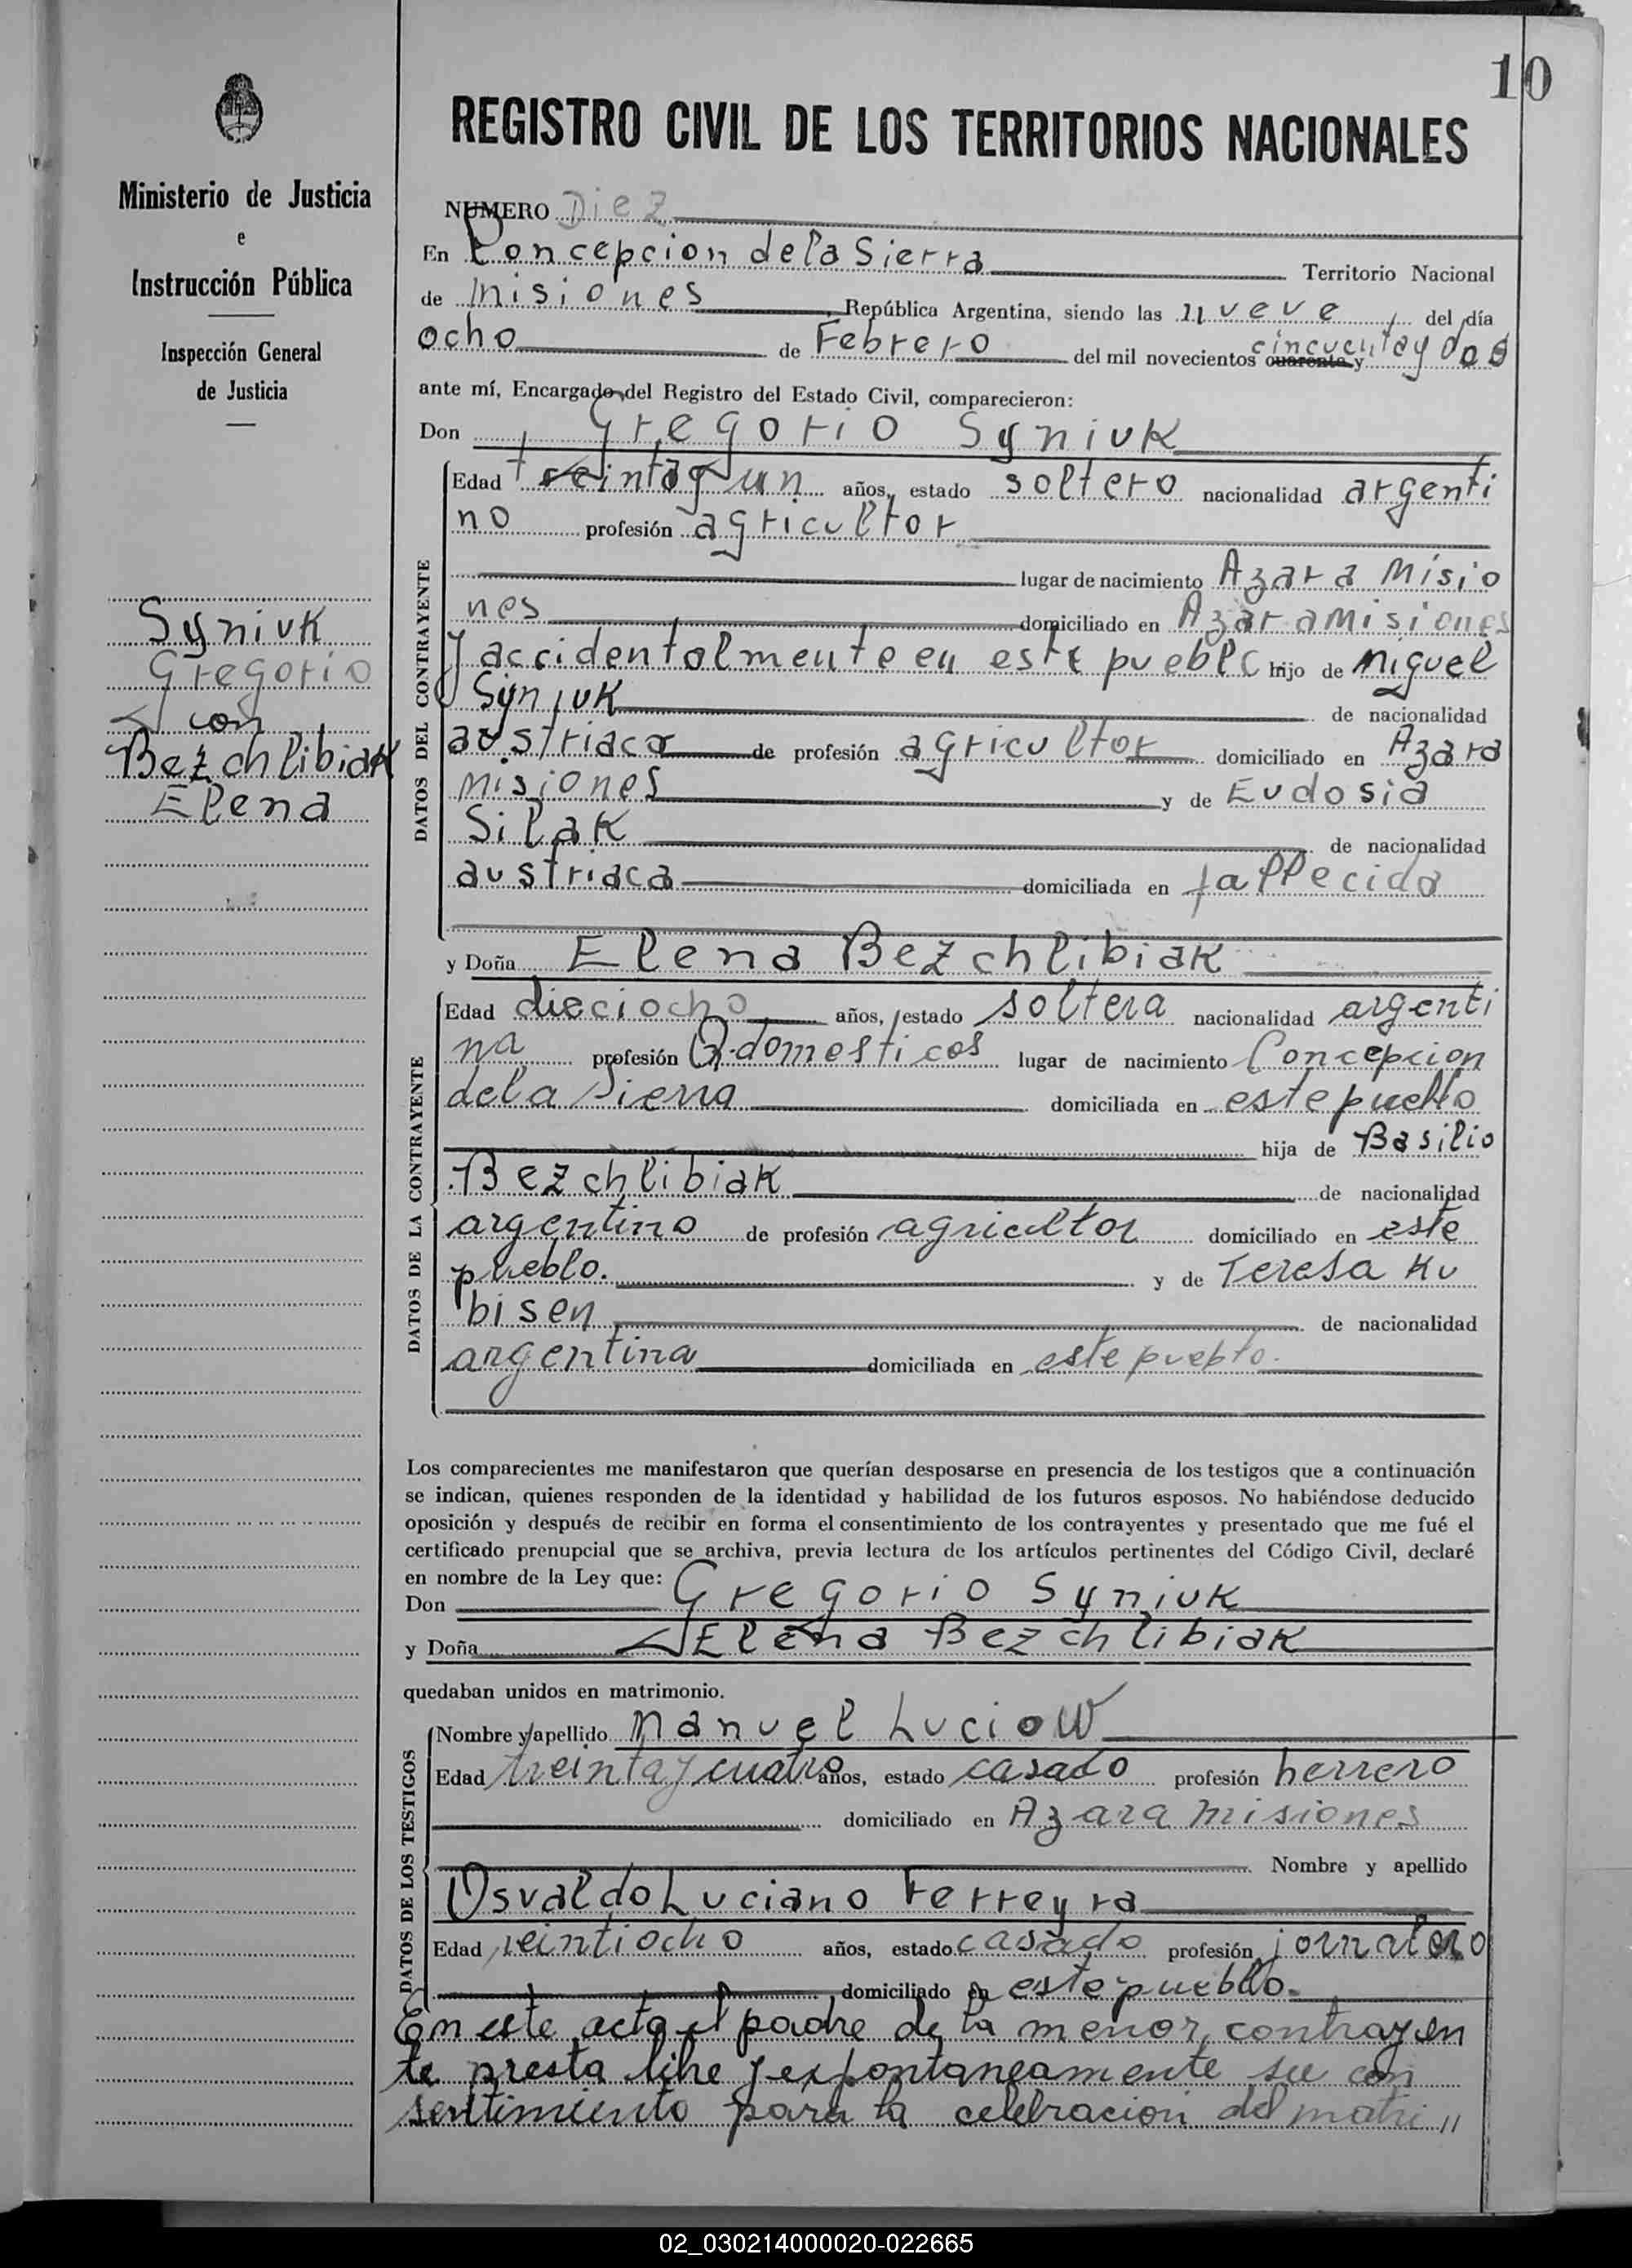 10
REGISTRO CIVIL DE LOS TERRITORIOS NACIONALES
Ministerio de Justicia
e
Instrucción Pública
Inspección General
de Justicia
Syniuk
Gregorio
con
Bezchlibiak
Elena
NUMERO Diez
En Concepcion de la Sierra Territorio Nacional
de Misiones, República Argentina, siendo las nueve del día
ocho de Febrero del mil novecientos cuarenta y cincuenta y dos
ante mí, Encargado del Registro del Estado Civil, comparecieron:
Don Gregorio Syniuk
DATOS DEL CONTRAYENTE
Edad treinta y un años, estado soltero nacionalidad argenti
no profesión agricultor
lugar de nacimiento Azara Misio
nes domiciliado en Azara Misiones
y accidentalmente en este pueblo hijo de Miguel
Syniuk de nacionalidad
austriaco de profesión agricultor domiciliado en Azara
Misiones y de Eudosia
Silak de nacionalidad
austriaca domiciliada en fallecida
y Doña Elena Bezchlibiak
DATOS DE LA CONTRAYENTE
Edad dieciocho años, estado soltera nacionalidad argenti
na profesión Q. domesticos lugar de nacimiento Concepcion
de la Sierra domiciliada en este pueblo
hija de Basilio
Bezchlibiak de nacionalidad
argentino de profesión agricultor domiciliado en este
pueblo. y de Teresa Ku
bisen de nacionalidad
argentina domiciliada en este pueblo.
Los comparecientes me manifestaron que querían desposarse en presencia de los testigos que a continuación
se indican, quienes responden de la identidad y habilidad de los futuros esposos. No habiéndose deducido
oposición y después de recibir en forma el consentimiento de los contrayentes y presentado que me fué el
certificado prenupcial que se archiva, previa lectura de los artículos pertinentes del Código Civil, declaré
en nombre de la Ley que:
Don Gregorio Syniuk
y Doña Elena Bezchlibiak
quedaban unidos en matrimonio.
DATOS DE LOS TESTIGOS
Nombre y apellido Manuel Luciow
Edad treinta y cuatro años, estado casado profesión herrero
domiciliado en Azara Misiones
Nombre y apellido
Osvaldo Luciano Ferreyra
Edad veintiocho años, estado casado profesión jornalero
domiciliado en este pueblo.
En este acto el padre de la menor contrayen
te presta libre y expontaneamente su con
sentimiento para la celebracion del matri "
02_030214000020-022665